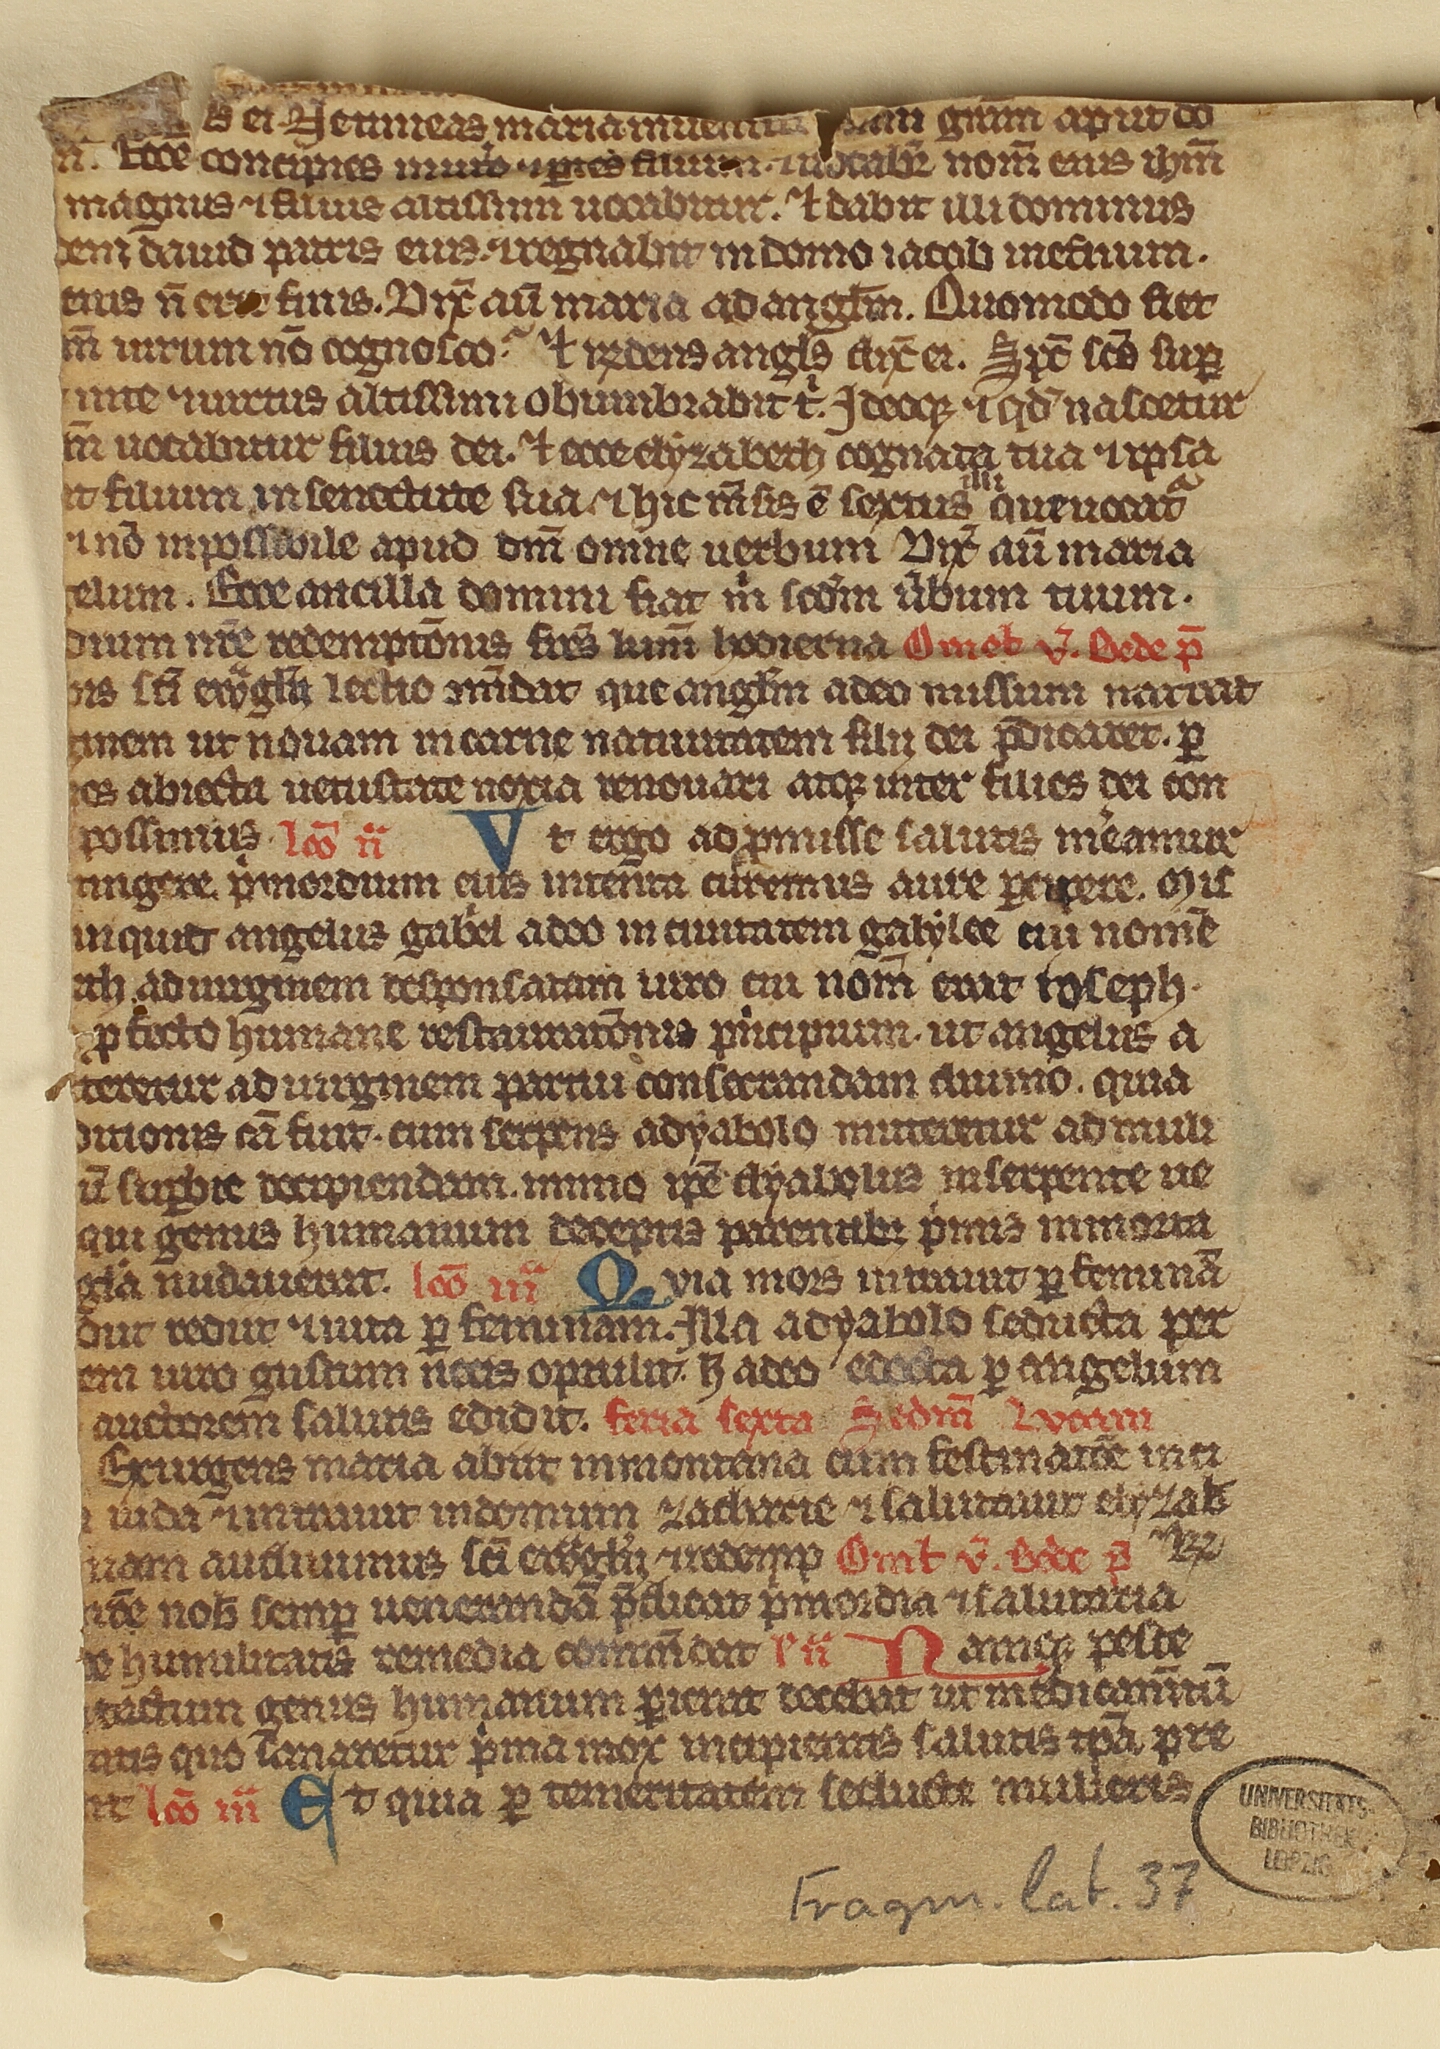 s ei. Ne timeas maria inuenisti gr̄am aput do
n̄. Ecce concipies in utͦo ⁊ paries filium. ⁊ uocabis nom̄ eius ih̄m
magnus ⁊ filius altissimi uocabitur. Et dabit illi dominus
dem dauid patris eius. ⁊ regnabit in domo iacob inet̄num.
eius n̄ erit finis. Dix̄ aū maria ad angl̄m. Quomodo fiet
m̄ uirum nō cognosco. Et r̄ndens angl̄s dix̄ ei. Sp̄c sc̄s suꝑ
inte ⁊ uirtus altissimi obumbrabit t͛. Ideoqꝫ ⁊ qd̓ nascetur
m̄ uocabitur filius dei. Et ecce elẏzabeth cognata tua ⁊ ipsa
it filium in senectute sua. ⁊ hic m̄sis ē sextus illi que uocat᷑
⁊ nō inpossibile apud dm̄ omne uerbum Dix̄ aū maria
gelum. Ecce ancilla domini fiat m͛ scd̄m u̓bum tuum.
dium nr̄e redemptōnis fr̄s kar̄mi hodierna Omel̄ v̄. Bede p̄
ris sc̄i ewͣgl̄ii lectio cōm̄dat que angl̄m adeo missum narrat
ginem ut nouam in carne natiuitatem filij dei p̄dicaret. ꝑ
es abiecta uetustate noxia renouari atqꝫ inter filios dei con
possimus lc̄o ii Vt ergo ad ꝓmisse salutis m̓eamur
tingere pͥmordium eius intenta curemus aure ꝑcipere. Mis
inquit angelus gabͥel adeo in ciuitatem galẏlee cui nomē
eth ad uirginem desponsatam uiro cui nom̄ erat ioseph.
ꝑfecto humane restauratōnis pͥncipium. ut angelus a
tteretur ad uirginem partu consecrandam diuino. quia
ditionis cā fuit. cum serpens adẏabolo mitteretur ad muli
ū suꝑbie decipiendam. immo ip̄e dẏabolus in serpente ue
qui genus humanum deceptis parentibꝫ pͥmis inmorta
gl̄a nudauerat. lc̄o iii Quia mors intrauit ꝑ feminā
dit rediit ⁊ uita ꝑ feminam. Illa adẏabolo seducta per
em uiro gustum necis optulit. h̄ adeo edocta ꝑ angelum
auctorem salutis edidit. feria sexta Sc̄dm̄ Lucam
Exurgens maria abiit in montana cum festinatōe in ci
iuda ⁊ intrauit in domum zacharie ⁊ salutauit elẏzab̄
quam audiuimus sc̄i ewͣgl̄ij ⁊ redemp Omel̄ v̄. Bede p̄
nob̄ semꝑ uenerandā p̄dicat pͥmordia ⁊ salutaria
humilitatis remedia commēdat l̓ ii Namqꝫ peste
tactum genus humanum ꝑierat decebat ut medicam̄tū
tatis quo sanaretur pͥma mox incipientis salutis tp̄a pre
nt lc̄o iii Et quia ꝑ temeritatem seducte mulieris
Fragm. lat. 37
UNIVERSITÄTS-
BIBLIOTHEK
LEIPZIG